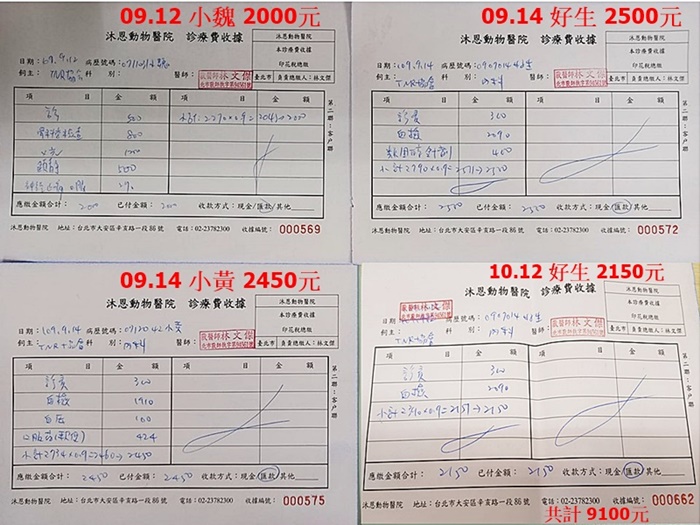 09.12 小魏 2000元
沐恩動物醫院 診療費收據
沐恩動物醫院
本診療費收據
印花稅總繳
臺北市 負責總繳人：林文傑
日期：109.9.12 病歷號碼：
飼主： 科別： 醫師：
獸醫師 林文傑
項目 金額 項目 金額
診 500
800
鎮靜 500
應繳金額合計：2000 已付金額：2000 收款方式：現金/匯款/其他
沐恩動物醫院 地址：台北市大安區辛亥路一段86號 電話：02-23782300 收據編號：000569
第二聯：客戶聯
09.14 好生 2500元
沐恩動物醫院 診療費收據
沐恩動物醫院
本診療費收據
印花稅總繳
臺北市 負責總繳人：林文傑
日期：109.9.14 病歷號碼：0909014 好生
飼主：TNR協會 科別：內科 醫師：
獸醫師 林文傑
項目 金額 項目 金額
診費 300
血檢 2090
400
小計2790×0.9=2511→2500
應繳金額合計：2500 已付金額：2500 收款方式：現金/匯款/其他
沐恩動物醫院 地址：台北市大安區辛亥路一段86號 電話：02-23782300 收據編號：000572
第二聯：客戶聯
09.14 小黃 2450元
沐恩動物醫院 診療費收據
沐恩動物醫院
本診療費收據
印花稅總繳
臺北市 負責總繳人：林文傑
日期：109.9.14 病歷號碼： 小黃
飼主：TNR協會 科別：內科 醫師：
獸醫師 林文傑
項目 金額 項目 金額
診費 300
血檢 1910
血压 100
424
小計2734×0.9=2460→2450
應繳金額合計：2450 已付金額：2450 收款方式：現金/匯款/其他
沐恩動物醫院 地址：台北市大安區辛亥路一段86號 電話：02-23782300 收據編號：000575
第二聯：客戶聯
10.12 好生 2150元
沐恩動物醫院 診療費收據
沐恩動物醫院
本診療費收據
印花稅總繳
臺北市 負責總繳人：林文傑
獸醫師 林文傑
病歷號碼：0909014 好生
飼主：TNR協會 科別：內科 醫師：
獸醫師 林文傑
項目 金額 項目 金額
診費 300
血檢 2090
小計2390×0.9=2151→2150
應繳金額合計：2150 已付金額：2150 收款方式：現金/匯款/其他
沐恩動物醫院 地址：台北市大安區辛亥路一段86號 電話：02-23782300 收據編號：000662
第二聯：客戶聯
共計 9100元